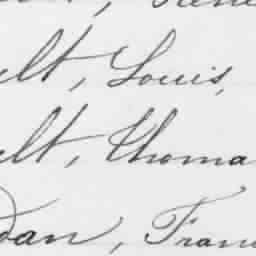 ult, Louis,
ult, Thoma
dan, Fran